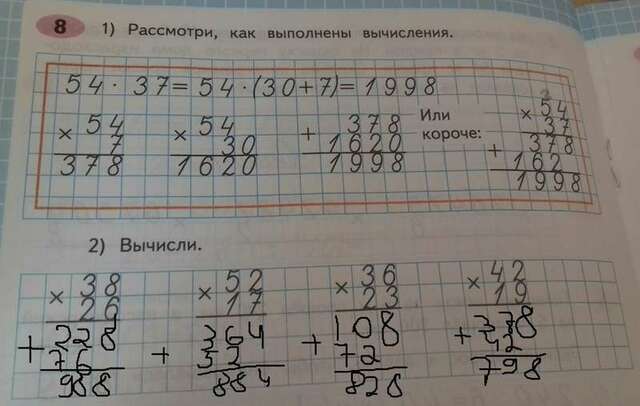 8 1) Рассмотри, как выполнены вычисления.
54 · 37 = 54 · (30 + 7) = 1998
× 54
7
378
× 54
30
1620
+ 378
1620
1998
Или
короче:
2
× 54
37
+ 378
162
1998
2) Вычисли.
× 38
26
+ 228
76
988
× 52
17
+ 364
52
884
× 36
23
+ 108
72
828
× 42
19
+ 378
42
798